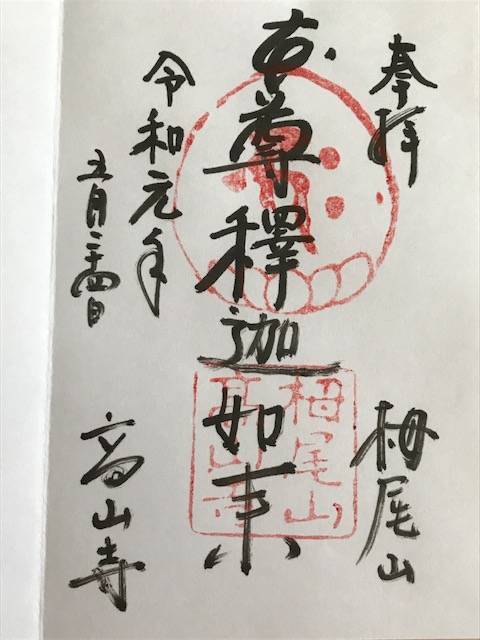 奉拝
栂尾山
本尊釋迦如来
令和元年
五月二十四日
高山寺
栂尾山
高山寺